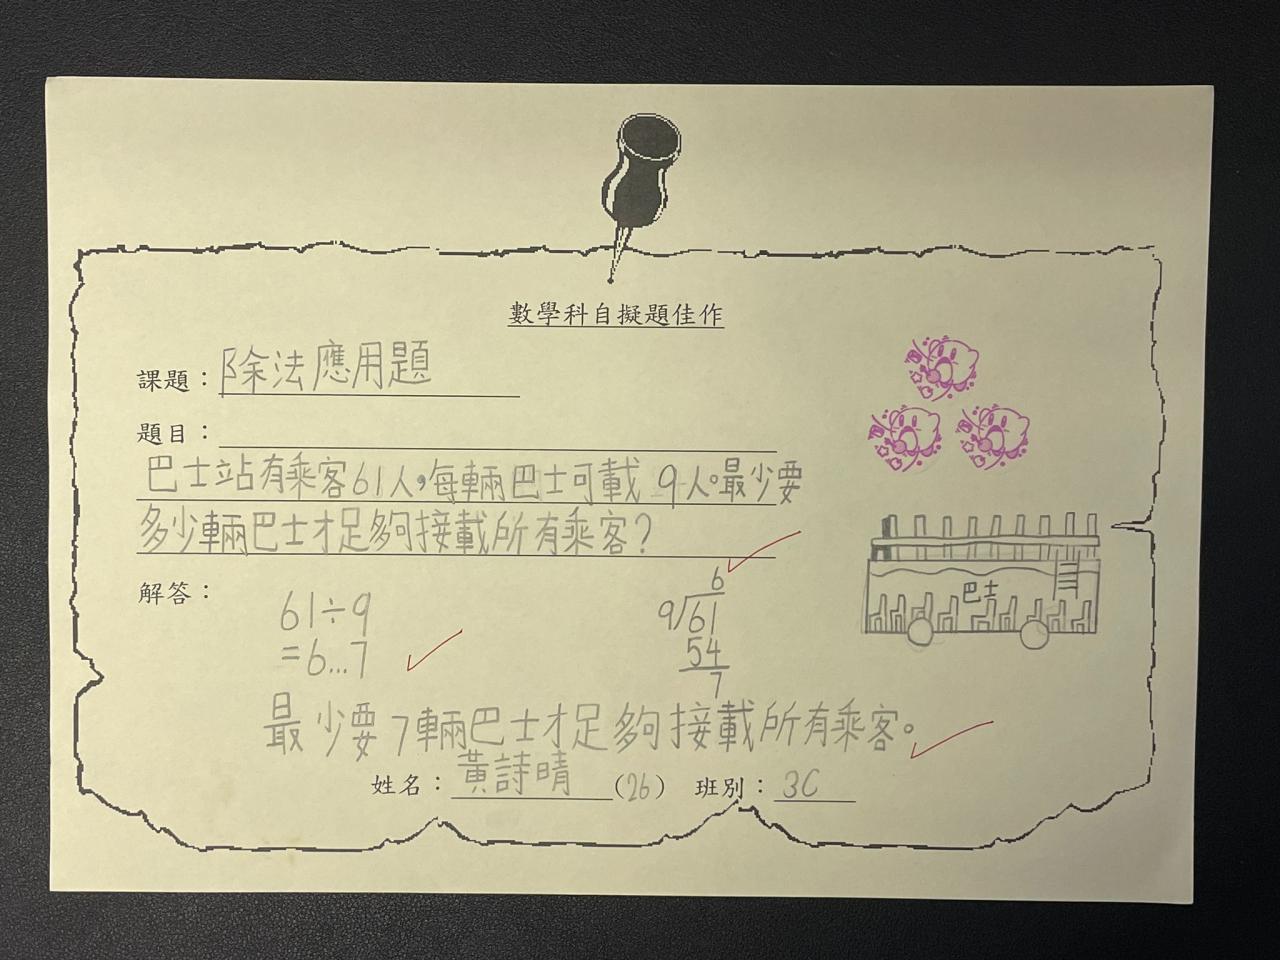 數學科自擬題佳作
課題：除法應用題
題目：
巴士站有乘客61人，每輛巴士可載 9人。最少要
多少輛巴士才足夠接載所有乘客？
解答：
61÷9
=6...7
6
9)61
54
7
巴士
最少要7輛巴士才足夠接載所有乘客。
姓名：黃詩晴(26) 班別：3C